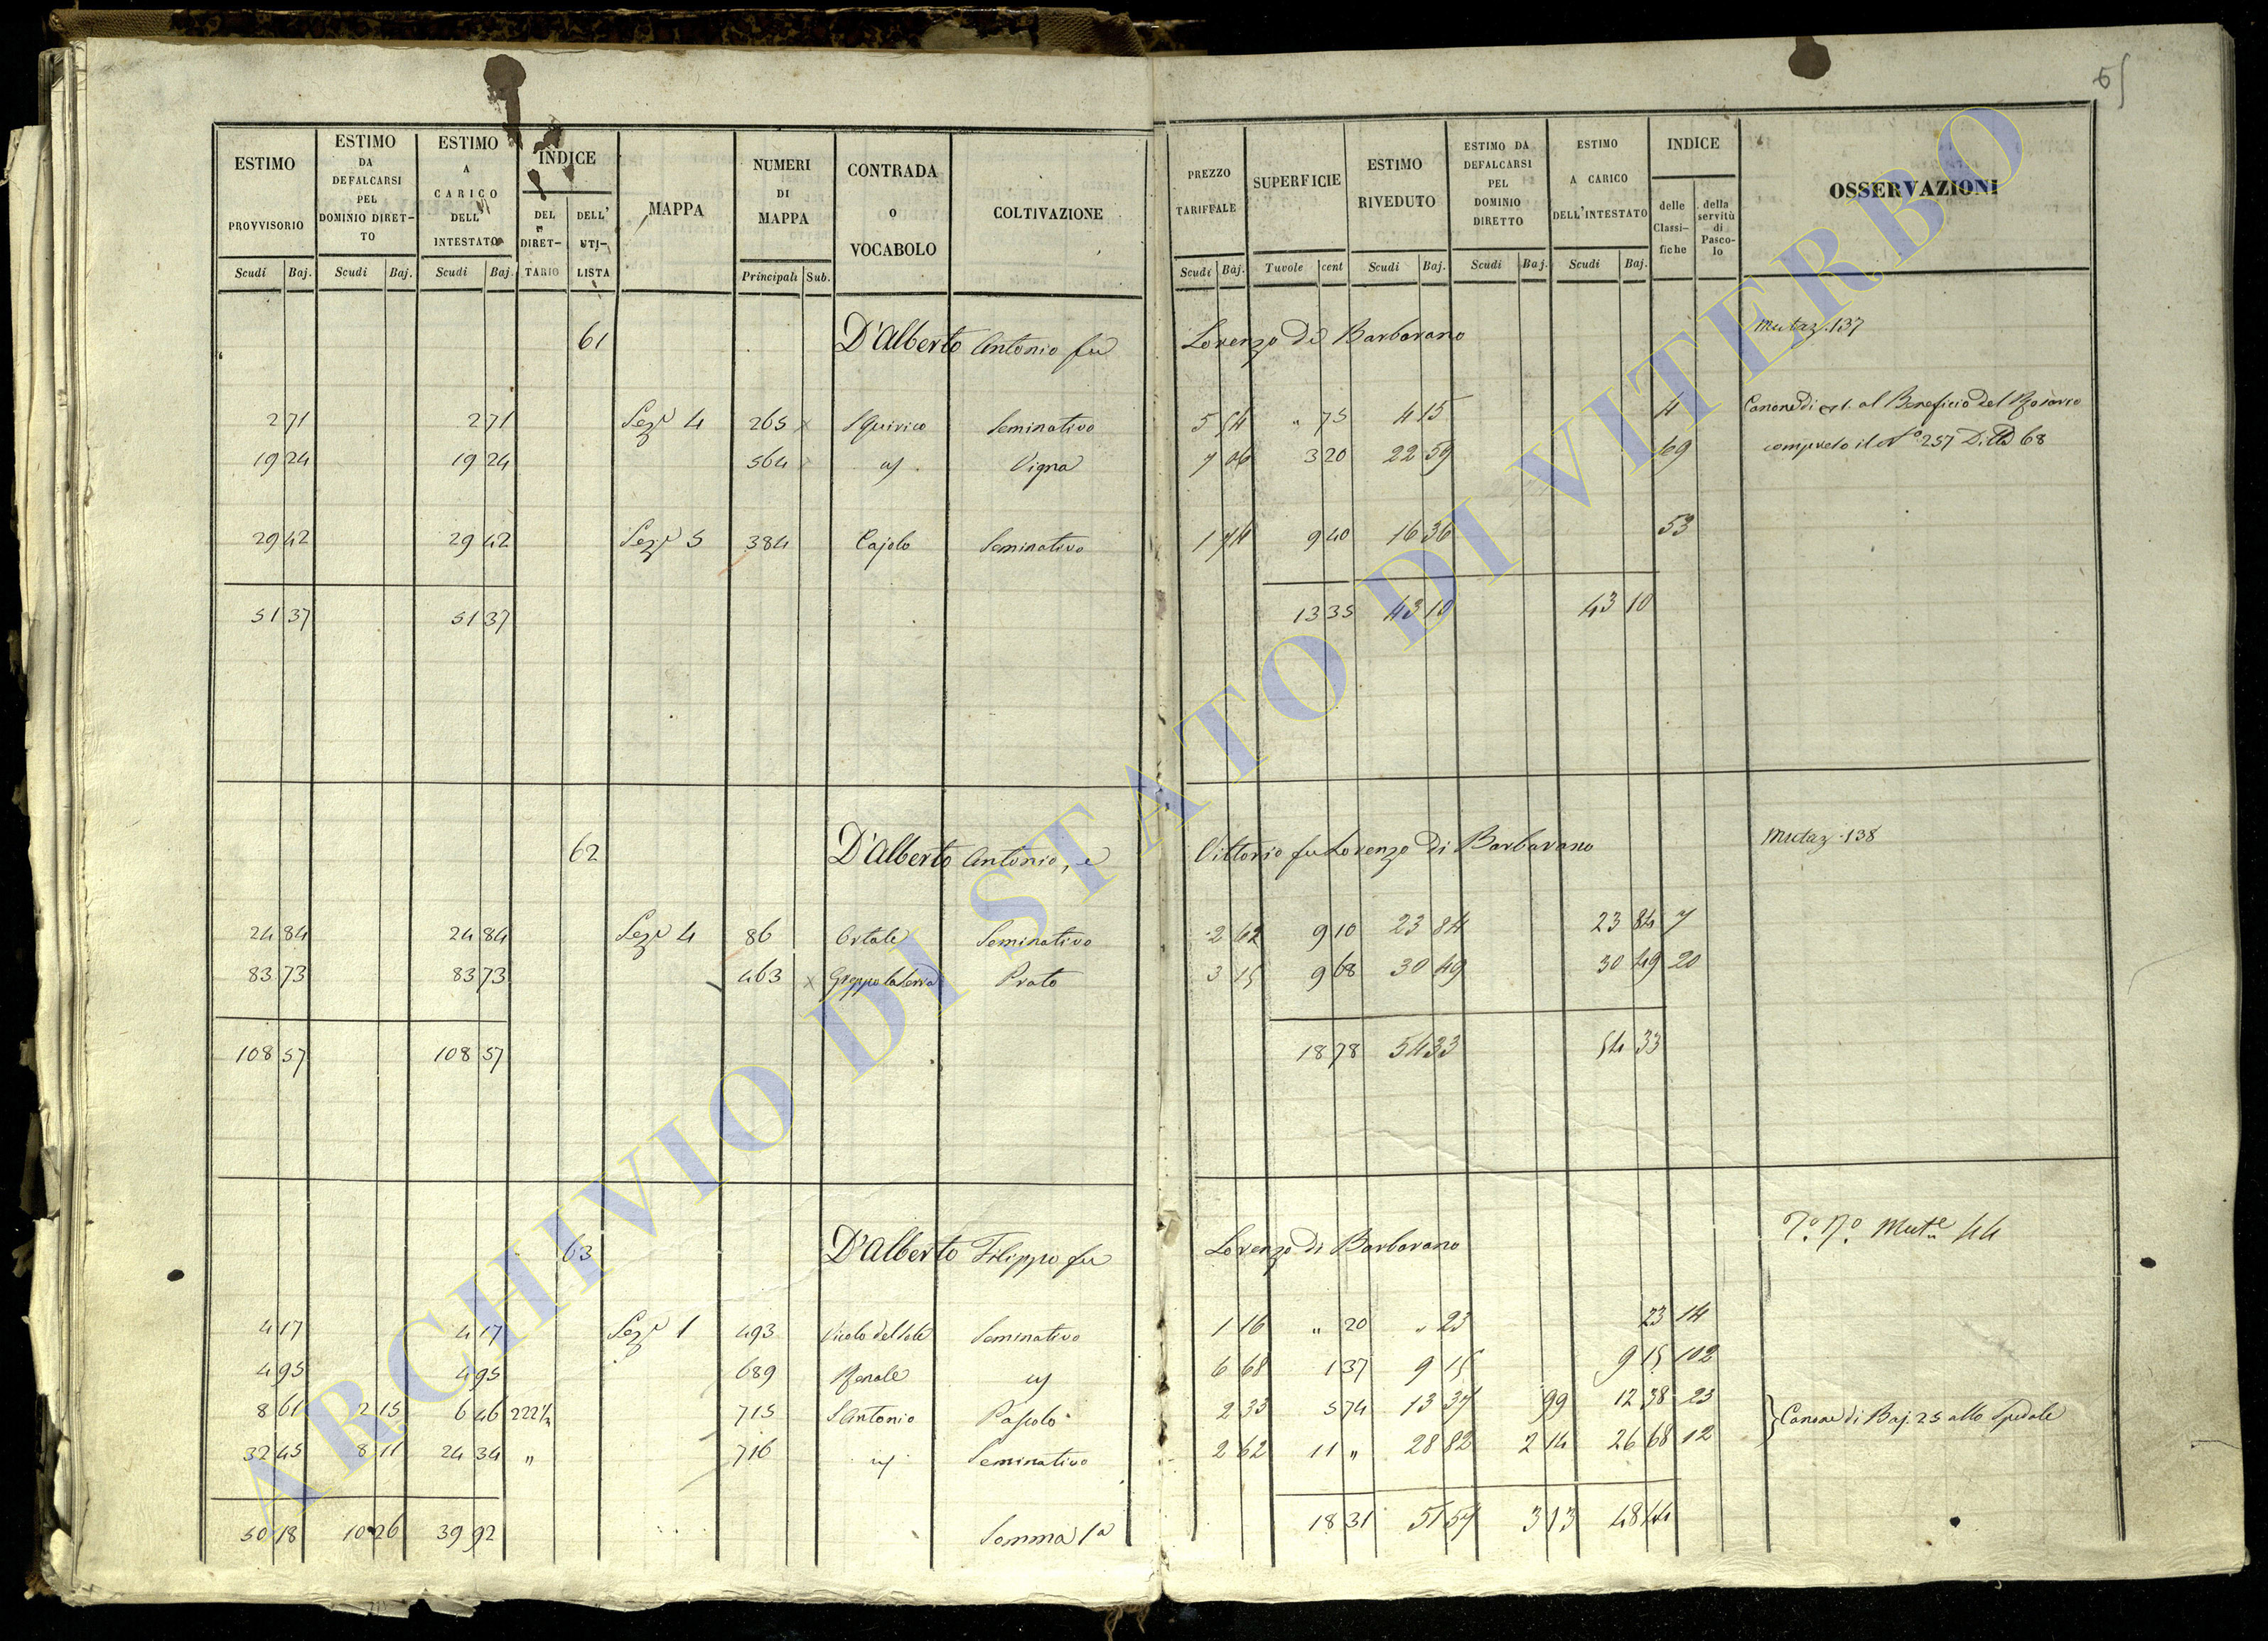 65
ESTIMO PROVVISORIO Scudi Baj.
ESTIMO DA DEFALCARSI PEL DOMINIO DIRET-TO Scudi Baj.
ESTIMO A CARICO DELL' INTESTATO Scudi Baj.
INDICE DEL DIRET-TARIO DELL' UTI-LISTA
MAPPA
NUMERI DI MAPPA Principali Sub.
CONTRADA O VOCABOLO
COLTIVAZIONE
PREZZO TARIFFALE Scudi Baj.
SUPERFICIE Tavole cent
ESTIMO RIVEDUTO Scudi Baj.
ESTIMO DA DEFALCARSI PEL DOMINIO DIRETTO Scudi Baj.
ESTIMO A CARICO DELL'INTESTATO Scudi Baj.
INDICE delle Classi-fiche della servitù di Pasco-lo
OSSERVAZIONI
61 D'Alberto Antonio fu Lorenzo di Barbarano Mutaz. 137
2 71 2 71 Sez.e 4 265 x S Quirico Seminativo 5 54 " 75 4 15 4 Canone di al Beneficio del Rosario
19 24 19 24 564 x Vigna 7 06 3 20 22 59 69 compreso il No 257 Ditta 68
29 42 29 42 Sez.e 5 384 Cajolo Seminativo 1 74 9 40 16 36 53
51 37 51 37 13 35 43 10 43 10
62 D'Alberto Antonio, e Vittorio fu Lorenzo di Barbarano Mutaz. 138
24 84 24 84 Sez.e 4 86 Ortale Seminativo 2 62 9 10 23 84 23 84 7
83 73 83 73 463 x Prato 3 15 9 68 30 49 30 49 20
108 57 108 57 18 78 54 33 54 33
63 D'Alberto Filippo fu Lorenzo di Barbarano Mut.e 44
4 17 4 17 Sez.e 1 493 Vicolo del Sole Seminativo 1 16 " 20 " 23 23 14
4 95 4 95 689 Renale 6 68 1 37 9 15 9 15 102
8 61 2 15 6 46 222½ 715 S Antonio Pascolo 2 33 5 74 13 37 99 12 38 23
32 45 8 11 24 34 " 716 Seminativo 2 62 11 " 28 82 2 14 26 68 12 Canone di Baj. 25 allo Spedale
50 18 10 26 39 92 Somma 1a 18 31 51 57 3 13 48 44
ARCHIVIO DI STATO DI VITERBO